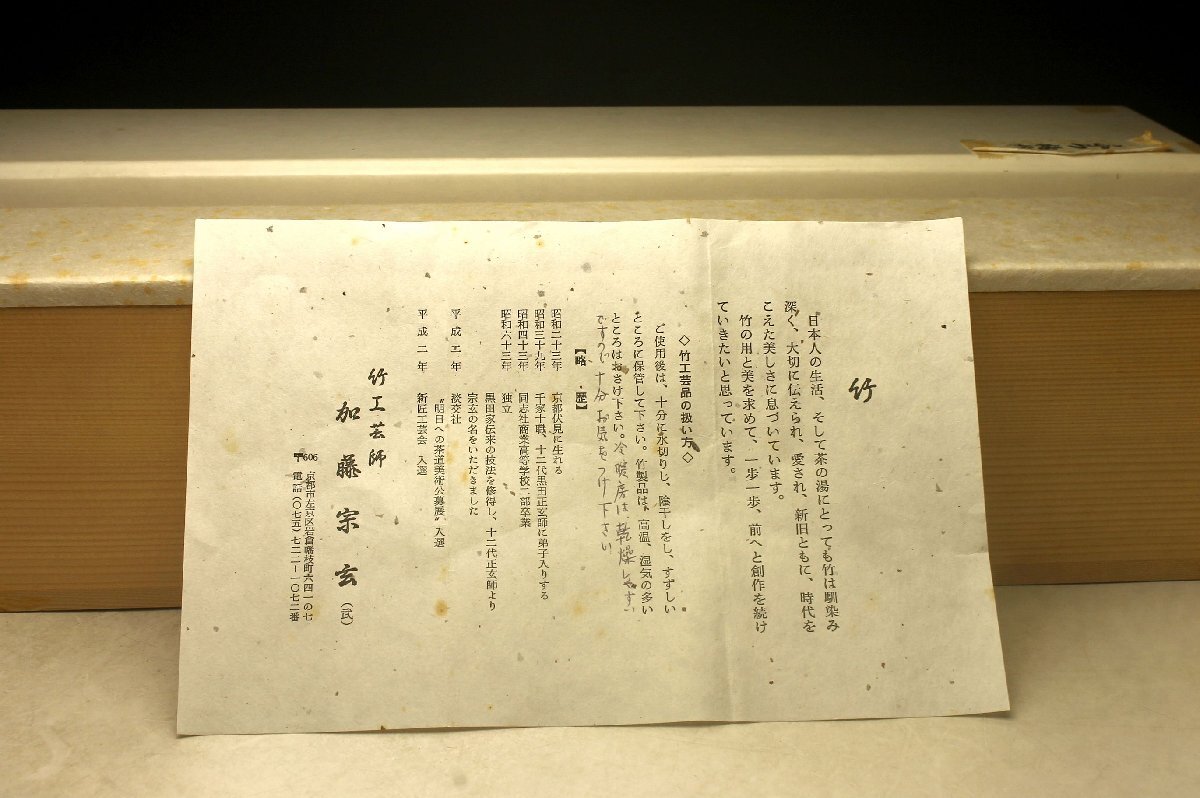 竹
日本人の生活、そして茶の湯にとっても竹は馴染み
深く、大切に伝えられ、愛され、新旧ともに、時代を
こえた美しさに息づいています。
竹の用と美を求めて、一歩一歩、前へと創作を続け
ていきたいと思っています。
◇竹工芸品の扱い方◇
ご使用後は、十分に水切りし、陰干しをし、すずしい
ところに保管して下さい。竹製品は、高温、湿気の多い
ところはおさけ下さい。冷暖房は乾燥しやすい
ですので十分お気をつけ下さい
【略歴】
昭和二十三年 京都伏見に生れる
昭和三十九年 千家十職、十二代黒田正玄師に弟子入りする
昭和四十三年 同志社商業高等学校二部卒業
昭和六十三年 独立
黒田家伝来の技法を修得し、十二代正玄師より
宗玄の名をいただきました
平成元年 淡交社
“明日への茶道美術公募展”入選
平成二年 新匠工芸会 入選
竹工芸師
加藤宗玄
〒606 京都市左京区岩倉幡枝町六四一の七
電話(〇七五)七二二―一〇七二番